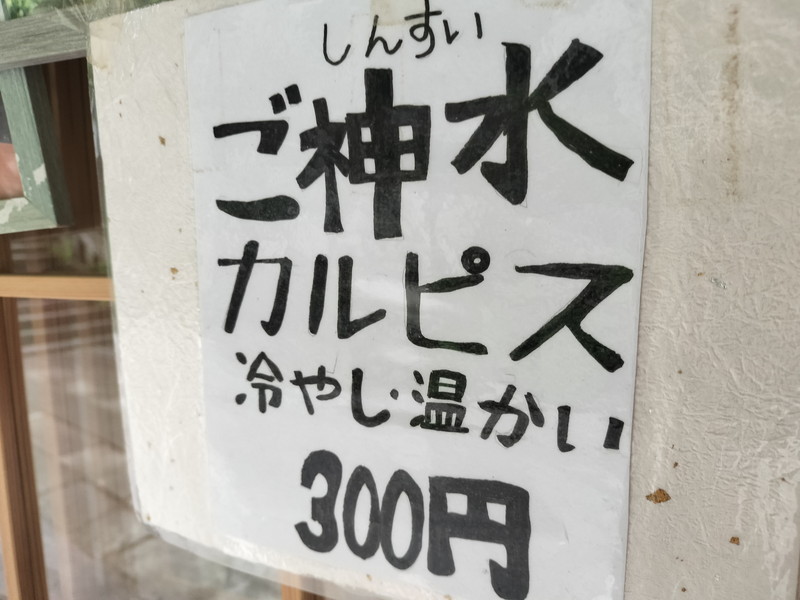 しんすい
ご神水
カルピス
冷やし・温かい
300円